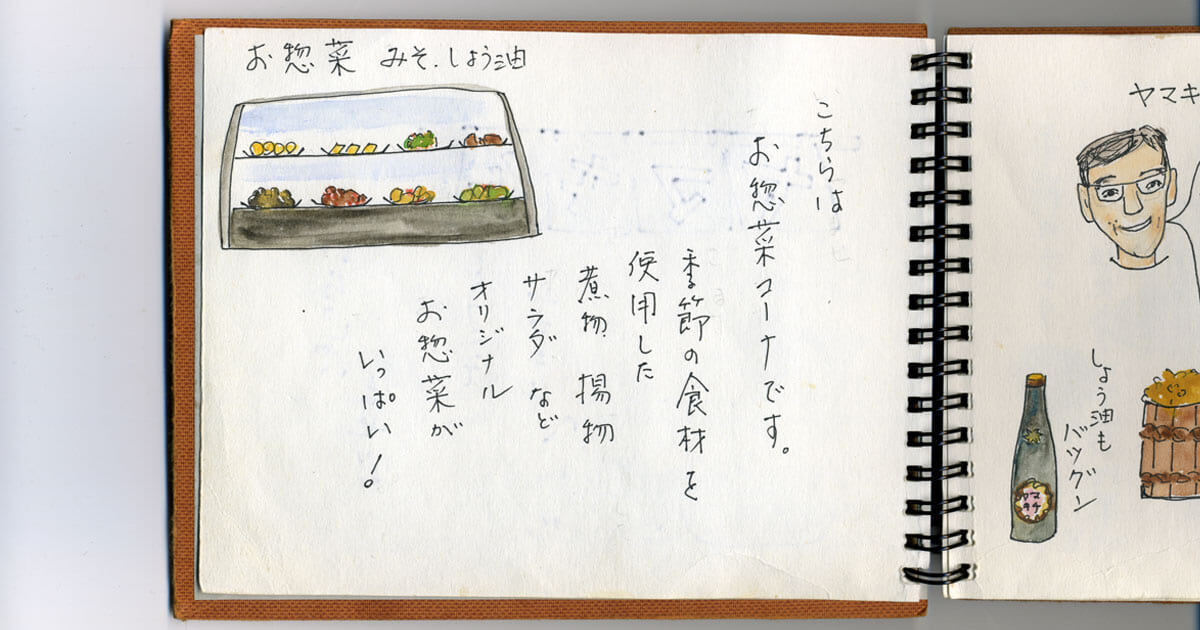 お惣菜 みそ.しょう油
こちらは
お惣菜コーナです。
季節の食材を
使用した
煮物、揚物
サラダ など
オリジナル
お惣菜が
いっぱい!
ヤマキ
しょう油も
バツグン